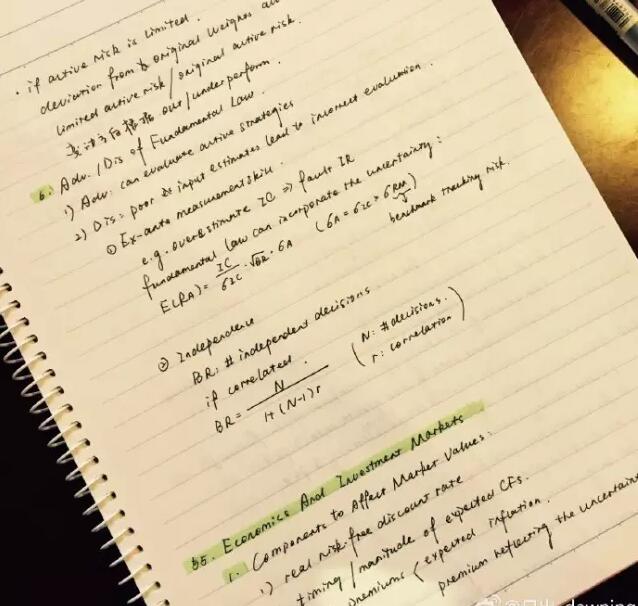 · if active risk is limited.
deviation from original weights
limited active risk / original active risk.
out/underperform.
6. Adv. / Dis of Fundamental Law.
1) Adv: can evaluate active strategies
2) Dis: poor input estimates lead to incorrect evaluation.
① Ex-ante measurement skill.
e.g. overestimate IC ⇒ fault IR
fundamental law can incorporate the uncertainty:
E(RA) = IC/σIC · √BR · σA (σA = σIC × σRM)
benchmark tracking risk.
② Independence
BR: # independent decisions
if correlated.
BR = N / 1+(N-1)r (N: # decisions. r: correlation)
55. Economics And Investment Markets
1. Components to Affect Market Values:
1) real risk-free discount rate
timing / manitude of expected CFs.
premiums < expected inflation.
premium reflecting the uncertaint